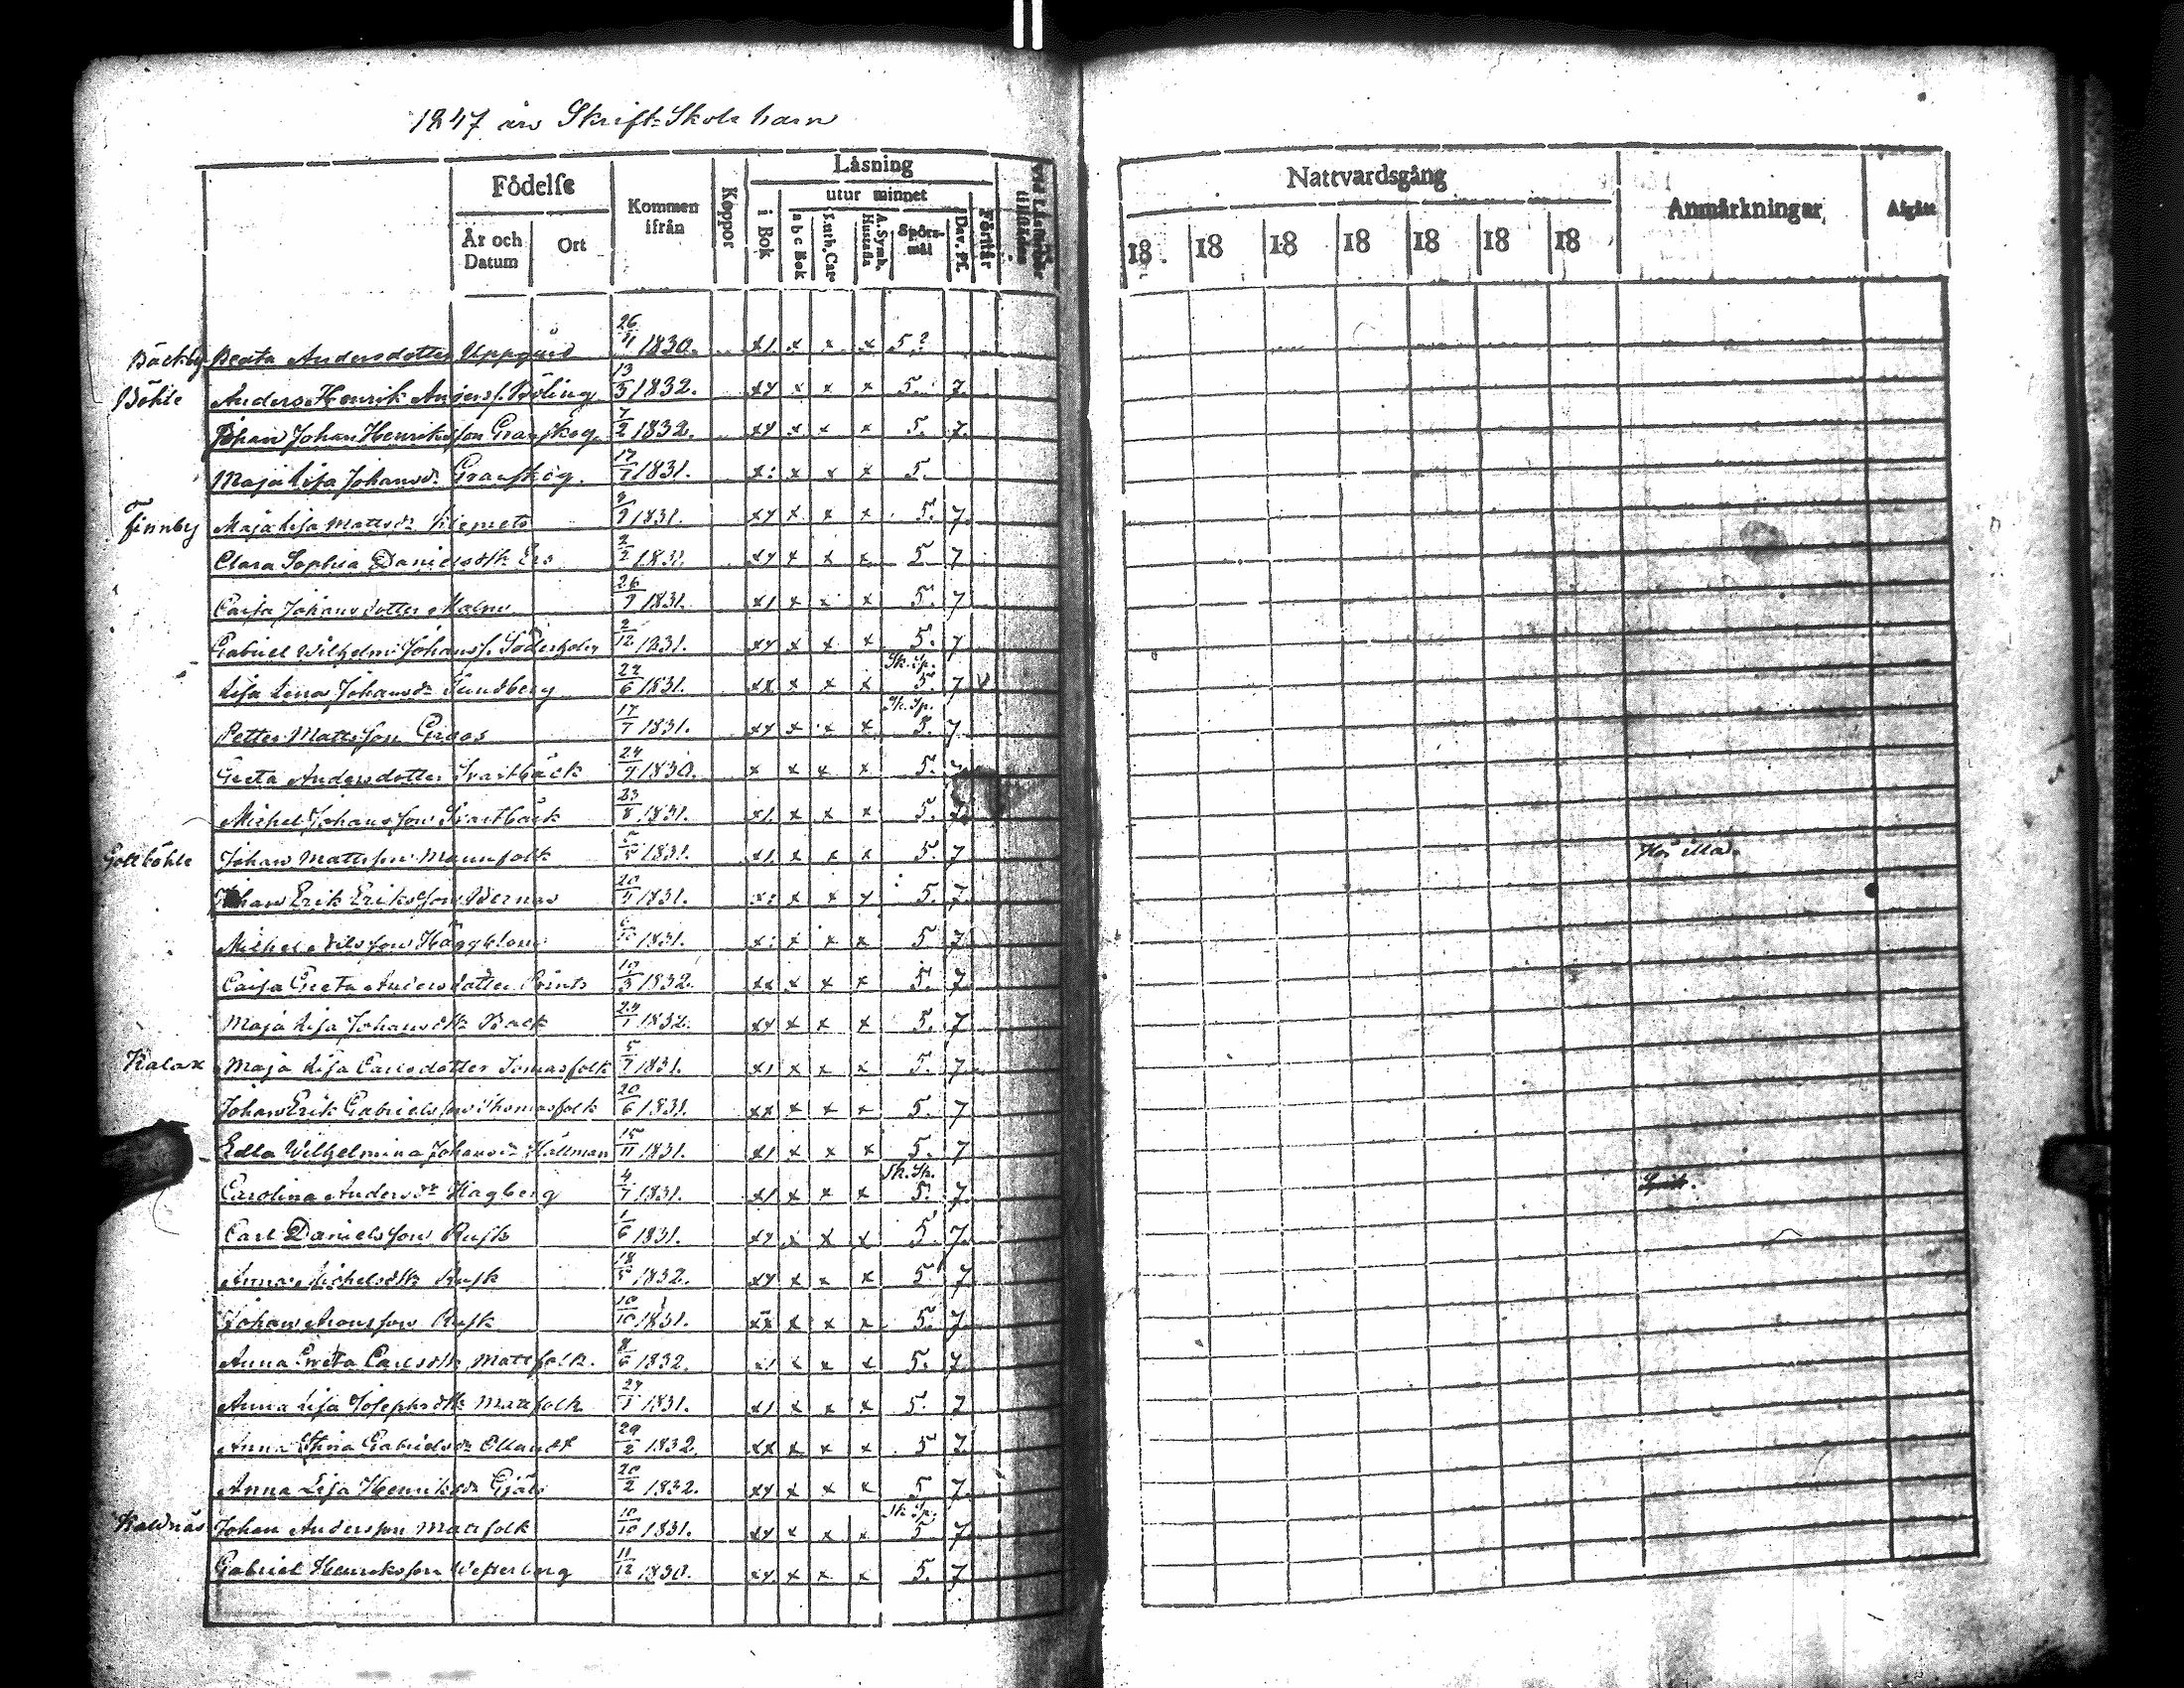 1847 års Skrift-Skole barn
Födelse
År och Datum
Ort
Kommen ifrån
Koppor
Läsning
i Bok
utur minnet
a b c Bok
Luth. Cat.
A. Symb. Hustafla
Spörs-mål
Dav. Ps.
Förstår
Nattvardsgång
18 18 18 18 18 18 18
Anmärkningar
Afgått
Bäckby Beata Andersdotter Uppgård 26/4 1830. x1 x x x 5?
Böhle Anders Henrik Anders. Böling 13/5 1832. xy x x x 5. 7.
Johan Johan Henriksson Granskog 7/2 1832. xy x x x 5. 7.
Maja Lisa Johansdr Granskog 17/7 1831. x: x x x 5.
Finnby Maja Lisa Mattsdr Klemets /9 1831. xy x x x 5. 7.
Clara Sophia Danielsdtr Ers 2/2 1831. xy x x x 5 7
Caisa Johansdotter Malm 26/9 1831. x1 x x x 5. 7
Gabriel Wilhelm Johans. Söderholm 2/12 1831. xy x x x 5. 7
Lisa Lena Johansdr Sundberg 22/6 1831. xx x x x Sk.Sp. 5. 7
Petter Mattsson Groos 17/7 1831. xy x x x Sk.Sp. 5. 7.
Greta Andersdotter Svartbäck 24/9 1830. x x x x 5. 7
Michel Johansson Svartbäck 23/8 1831. x1 x x x 5. 7.
Gottböhle Johan Mattsson Mannfolk 5/5 1831. x1 x x x 5. 7
Johan Erik Eriksson Wernas 20/4 1831. x: x x x 5. 7.
Michel Nilsson Häggblom 1831. x: x x x 5 7
Caisa Greta Andersdotter Prints 10/3 1832. xx x x x 5. 7.
Maja Lisa Johansdtr Back 24/1 1832. xy x x x 5. 7
Kalax Maja Lisa Carlsdotter Tomasfolk 5/7 1831. x1 x x x 5. 7.
Johan Erik Gabrielsson Thomasfolk 20/6 1831. xx x x x 5. 7
Edla Wilhelmina Johansdr Hällman 15/11 1831. x1 x x x 5. 7
Carolina Andersdr Hagberg 4/7 1831. x1 x x x Sk.Sp. 5. 7.
Carl Danielsson Rusk 1/6 1831. xy x x x 5. 7.
Anna Michelsdtr Rusk 18/5 1832. xy x x x 5 7
Johan Aronsson Rusk 10/10 1831. xx x x x 5. 7.
Anna Greta Carlsdtr Mattfolk. 8/6 1832. x1 x x x 5. 7.
Anna Lisa Josephsdtr Mattfolk 27/7 1831. x1 x x x 5. 7
Anna Stina Gabrielsdr 29/2 1832. xx x x x 5 7
Anna Lisa Henriksdr Gjäls 20/2 1832. xy x x x 5 7.
Kaldnäs Johan Andersson Mattfolk 10/10 1831. xy x x x Sk.Sp. 5 7.
Gabriel Henriksson Westerberg 11/12 1830. xy x x x 5. 7